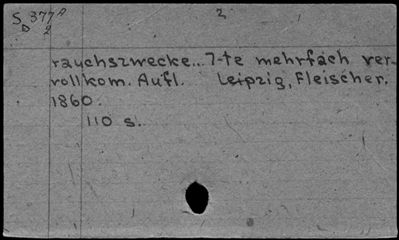 S 377A 2
D 2
rauchszwecke... 7-te mehrfach ver-
vollkom. Aufl. Leipzig, Fleischer.
1860.
110 s.